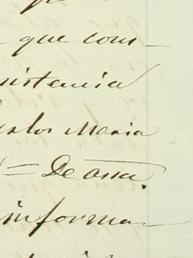 que com-
istencia
arlos Maria
= De ona.
informa-